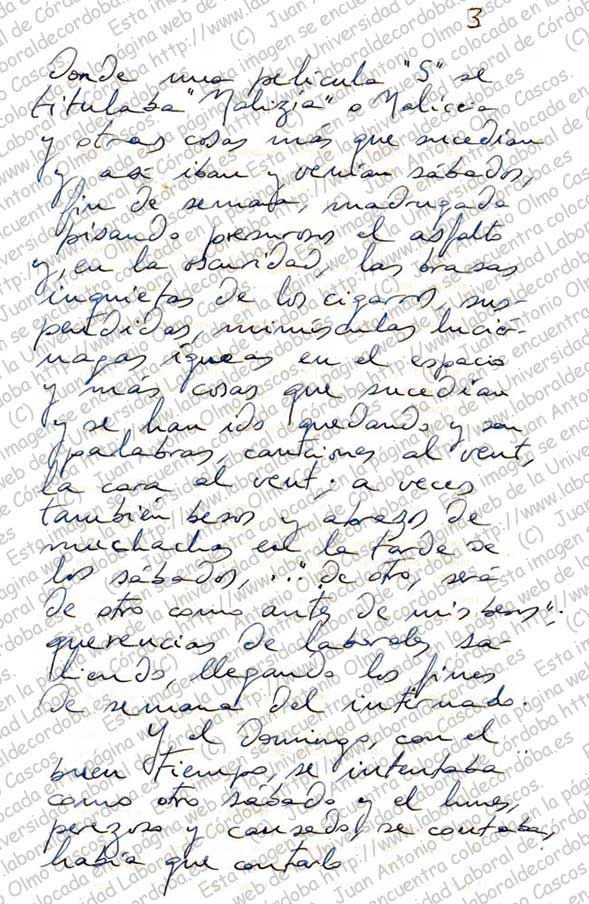 3
Donde una película "S" se
titulaba "Malizia" o Malicia
y otras cosas más que sucedían
y así iban y venían sábados,
fin de semana, madrugada
pisando presurosos el asfalto
y, en la oscuridad, las brasas
inquietas de los cigarros, sus-
pendidas, minúsculas luciér-
nagas ígneas en el espacio
y más cosas que sucedían
y se han ido quedando y son
palabras, canciones al vent,
la cara al vent; a veces
también besos y abrazos de
muchachas en la tarde de
los sábados, ..." de otro, será
de otro como antes de mis besos";
querencias de laborales sa-
liendo, llegando los fines
de semana del internado.
Y el Domingo, con el
buen tiempo, se intentaba
como otro sábado y el lunes,
perezoso y cansado, se contaba,
había que contarlo